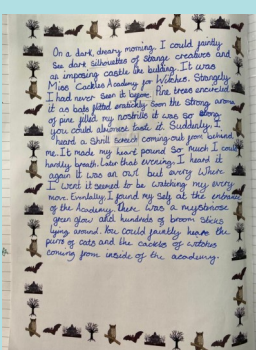 On a dark, dreary morning, I could faintly
see dark silhouettes of strange creatures and
an imposing castle like building. It was
Miss Cackles Academy for Witches. Strangely
I had never seen it before. Pine trees encircled
it as bats flitted eratically. Soon the strong aroma
of pine filled my nostrills it was so strong
you could almost taste it. Suddenly, I
heard a shrill screech coming out from behind
me. It made my heart pound so much I could
hardly breath. Later that evening, I heard it
again. It was an owl but every where
I went it seemed to be watching my every
move. Eventally, I found my self at the entrance
of the Academy. There was a mysteriose
green glow and hundreds of broom sticks
lying around. You could faintly hear the
purrs of cats and the cackles of witches
coming from inside of the academy.